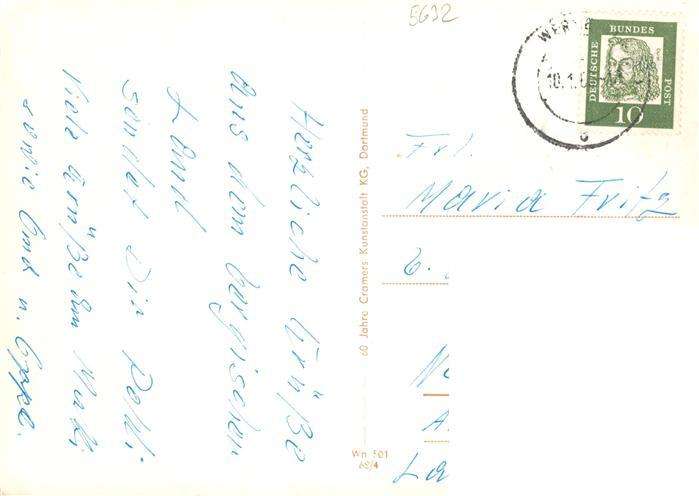 5632
WER
10.1.6
DEUTSCHE BUNDES POST
10
Herzliche Grüße
Aus dem bergischen
Land
sendet Dir
Viele Grüße
sowie Oma u. Oppa.
60 Jahre Cramers Kunstanstalt KG, Dortmund
Wn 501
62/4
Frl.
Maria Fritz
La